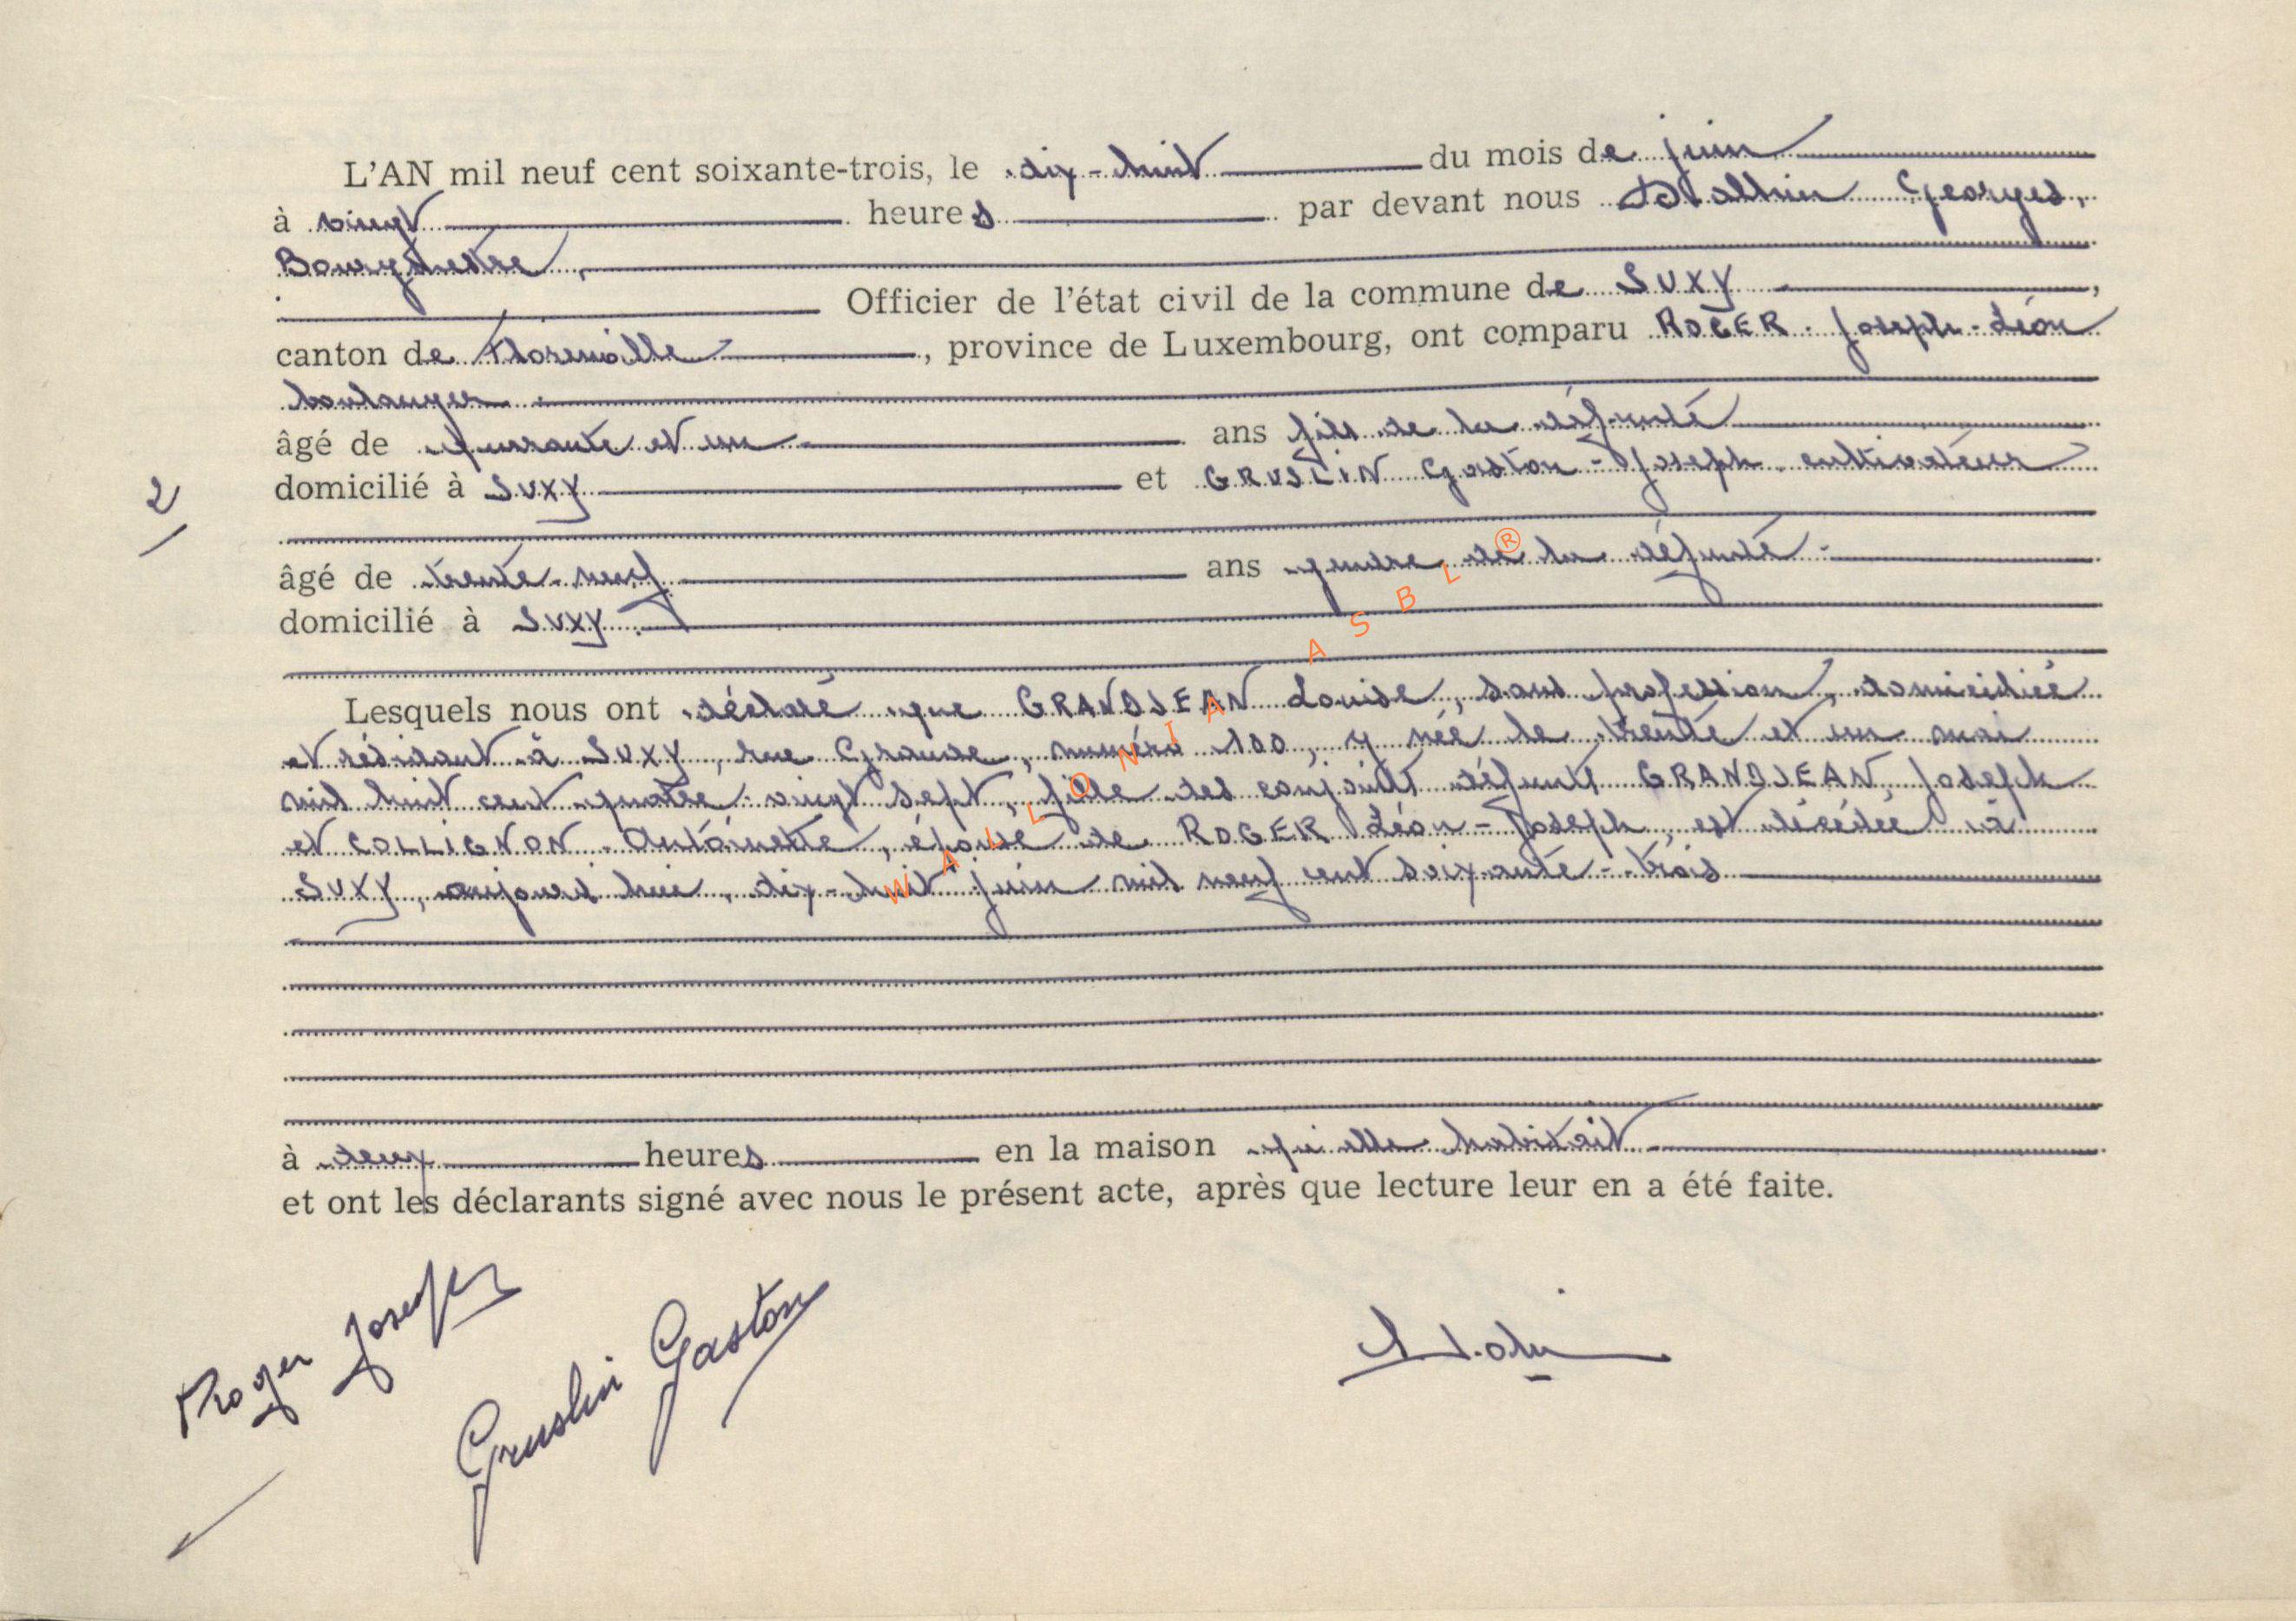 L'AN mil neuf cent soixante-trois, le dix-huit du mois de juin
à vingt heures par devant nous Georges,
Bourgmestre,
Officier de l'état civil de la commune de SUXY,
canton de Florenville, province de Luxembourg, ont comparu ROGER Joseph-Léon
boulanger
âgé de quarante et un ans fils de la défunte
domicilié à SUXY et GRUSLIN Gaston-Joseph cultivateur
2
âgé de trente-neuf ans gendre de la défunte
domicilié à SUXY
Lesquels nous ont déclaré que GRANDJEAN Louise, sans profession, domiciliée
et résidant à SUXY, rue Grande, numéro 100, y née le trente et un mai
mil huit cent quatre-vingt sept, fille des conjoints défunts GRANDJEAN Joseph
et COLLIGNON Antoinette, épouse de ROGER Léon-Joseph, est décédée à
SUXY, aujourd'hui, dix-huit juin mil neuf cent soixante-trois
à deux heures en la maison qu'elle habitait
et ont les déclarants signé avec nous le présent acte, après que lecture leur en a été faite.
Roger Joseph
Gruslin Gaston
WALLONIA ASBL ®